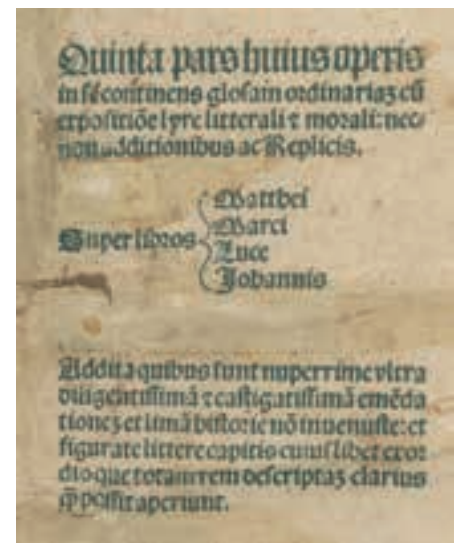 Quinta pars huius operis
in se cõtinens glosam ordinariaʒ cũ
expositiõe lyre litterali ⁊ morali: nec/
non additionibus ac Replicis.
Super libros
Matthei
Marci
Luce
Johannis
Addita quibus sunt nuperrime vltra
diligentissimã ⁊ castigatissimã emẽda
tioneʒ et limã historie nõ inuenuste: et
figurate littere capitis cuiuslibet exor
dio que totam rem descriptaʒ clarius
possit aperiunt.